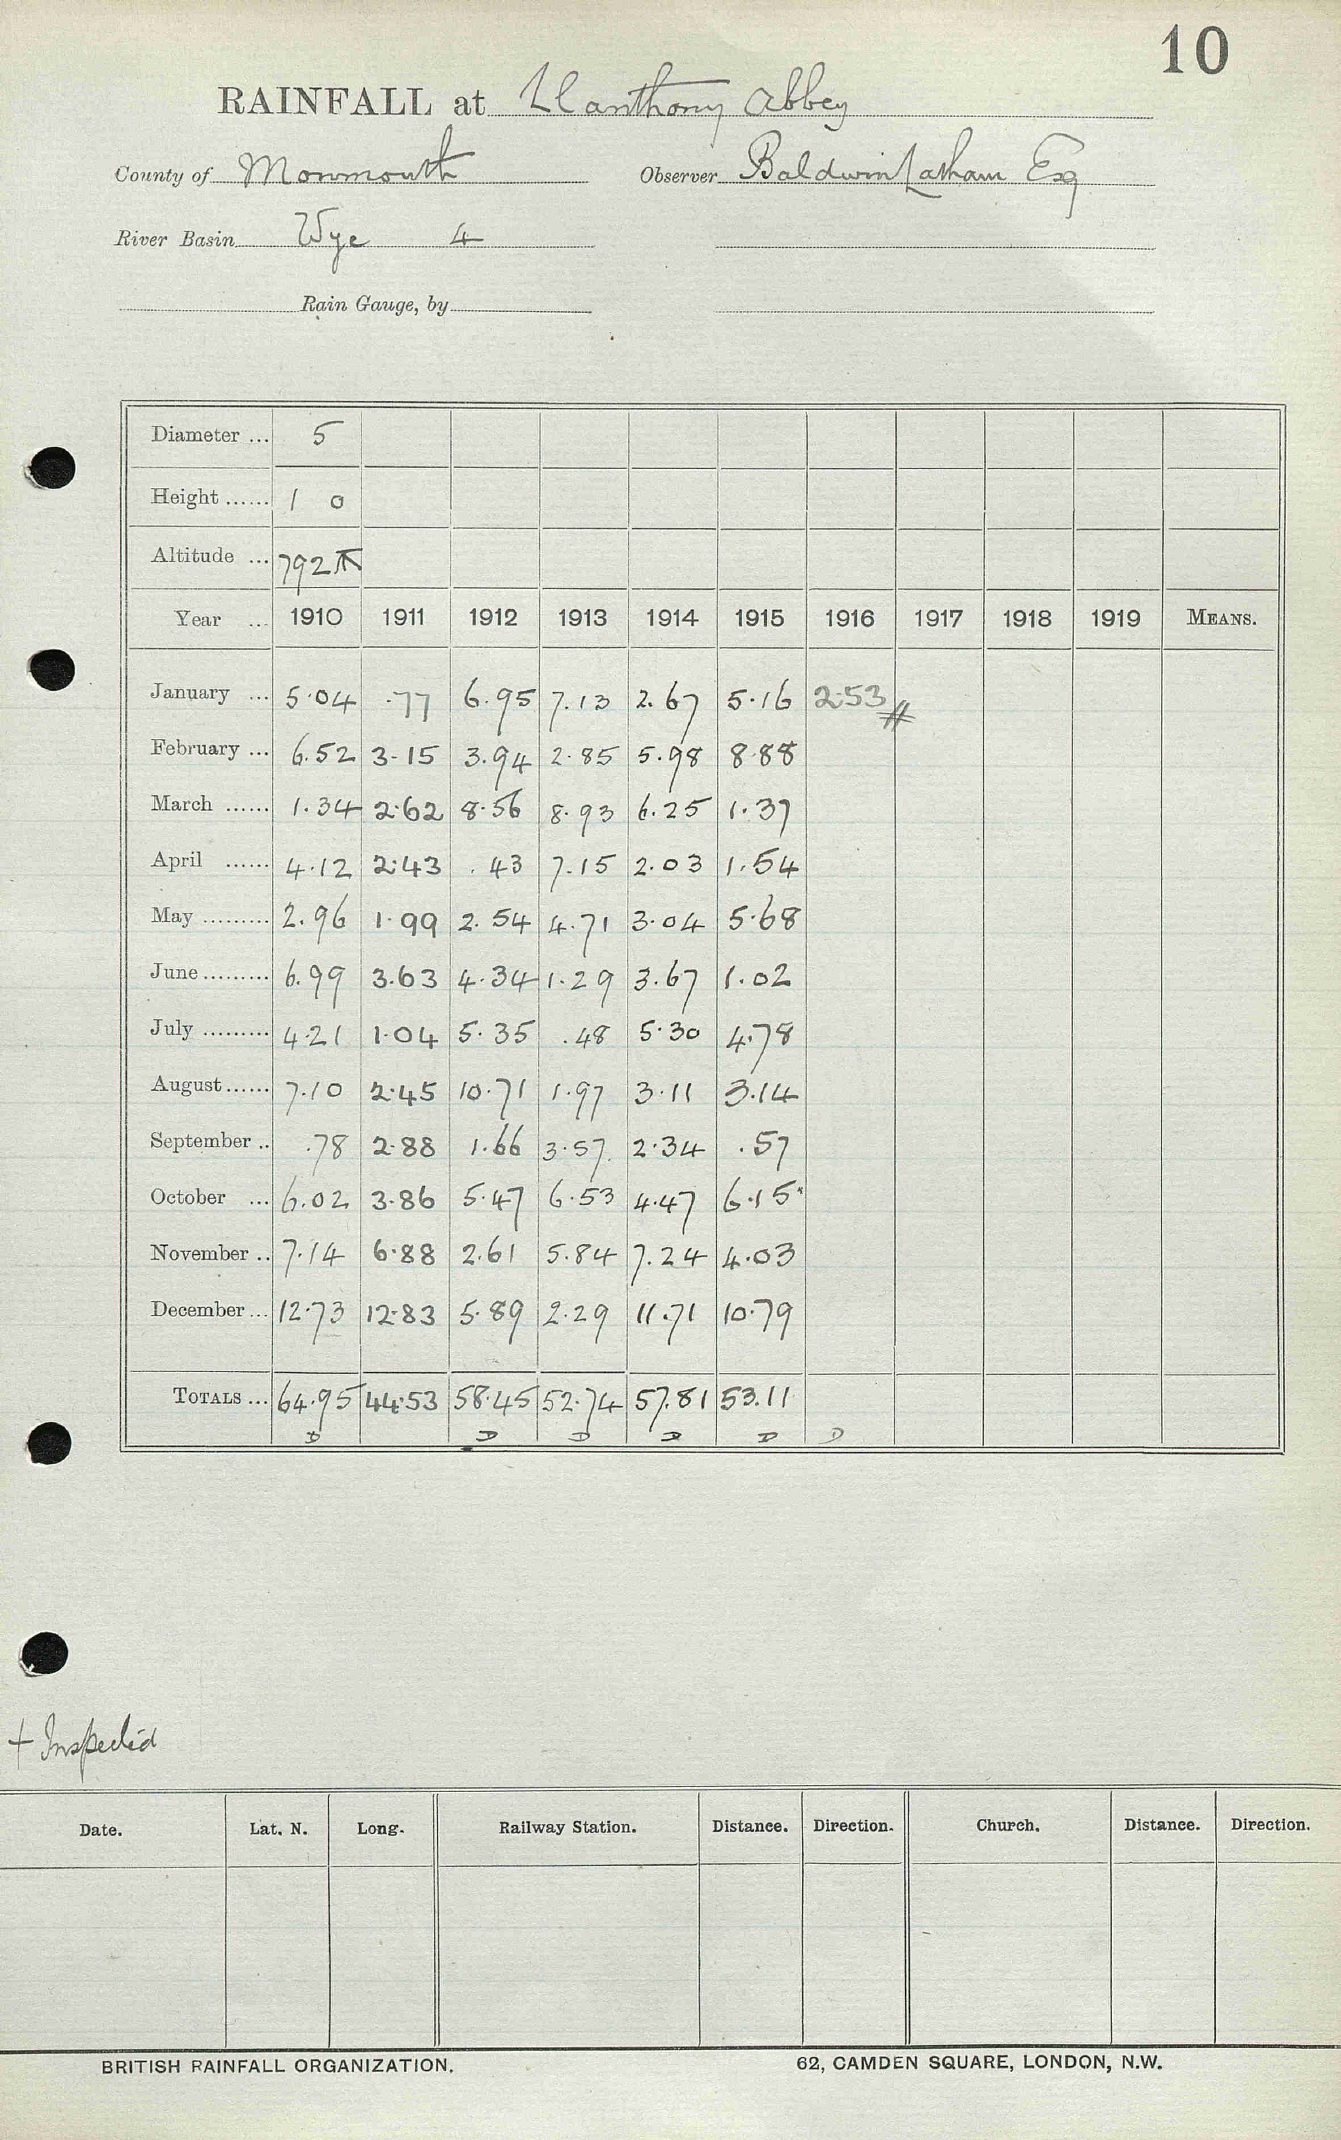 10
RAINFALL at Llanthony Abbey
County of Monmouth Observer Baldwin Latham Esq
River Basin Wye 4
Rain Gauge, by
Diameter ... 5
Height ...... 1 0
Altitude ... 792
Year ... 1910 1911 1912 1913 1914 1915 1916 1917 1918 1919 MEANS.
January ... 5.04 .77 6.95 7.13 2.67 5.16 2.53 #
February ... 6.52 3.15 3.94 2.85 5.98 8.88
March ...... 1.34 2.62 8.56 8.93 6.25 1.37
April ...... 4.12 2.43 .43 7.15 2.03 1.54
May ......... 2.96 1.99 2.54 4.71 3.04 5.68
June ......... 6.99 3.63 4.34 1.29 3.67 1.02
July ......... 4.21 1.04 5.35 .48 5.30 4.78
August ...... 7.10 2.45 10.71 1.97 3.11 3.14
September .. .78 2.88 1.66 3.57 2.34 .57
October ... 6.02 3.86 5.47 6.53 4.47 6.15
November .. 7.14 6.88 2.61 5.84 7.24 4.03
December ... 12.73 12.83 5.89 2.29 11.71 10.79
TOTALS ... 64.95 44.53 58.45 52.74 57.81 53.11
D D D D D D
+ Inspected
Date. Lat. N. Long. Railway Station. Distance. Direction. Church. Distance. Direction.
BRITISH RAINFALL ORGANIZATION. 62, CAMDEN SQUARE, LONDON, N.W.